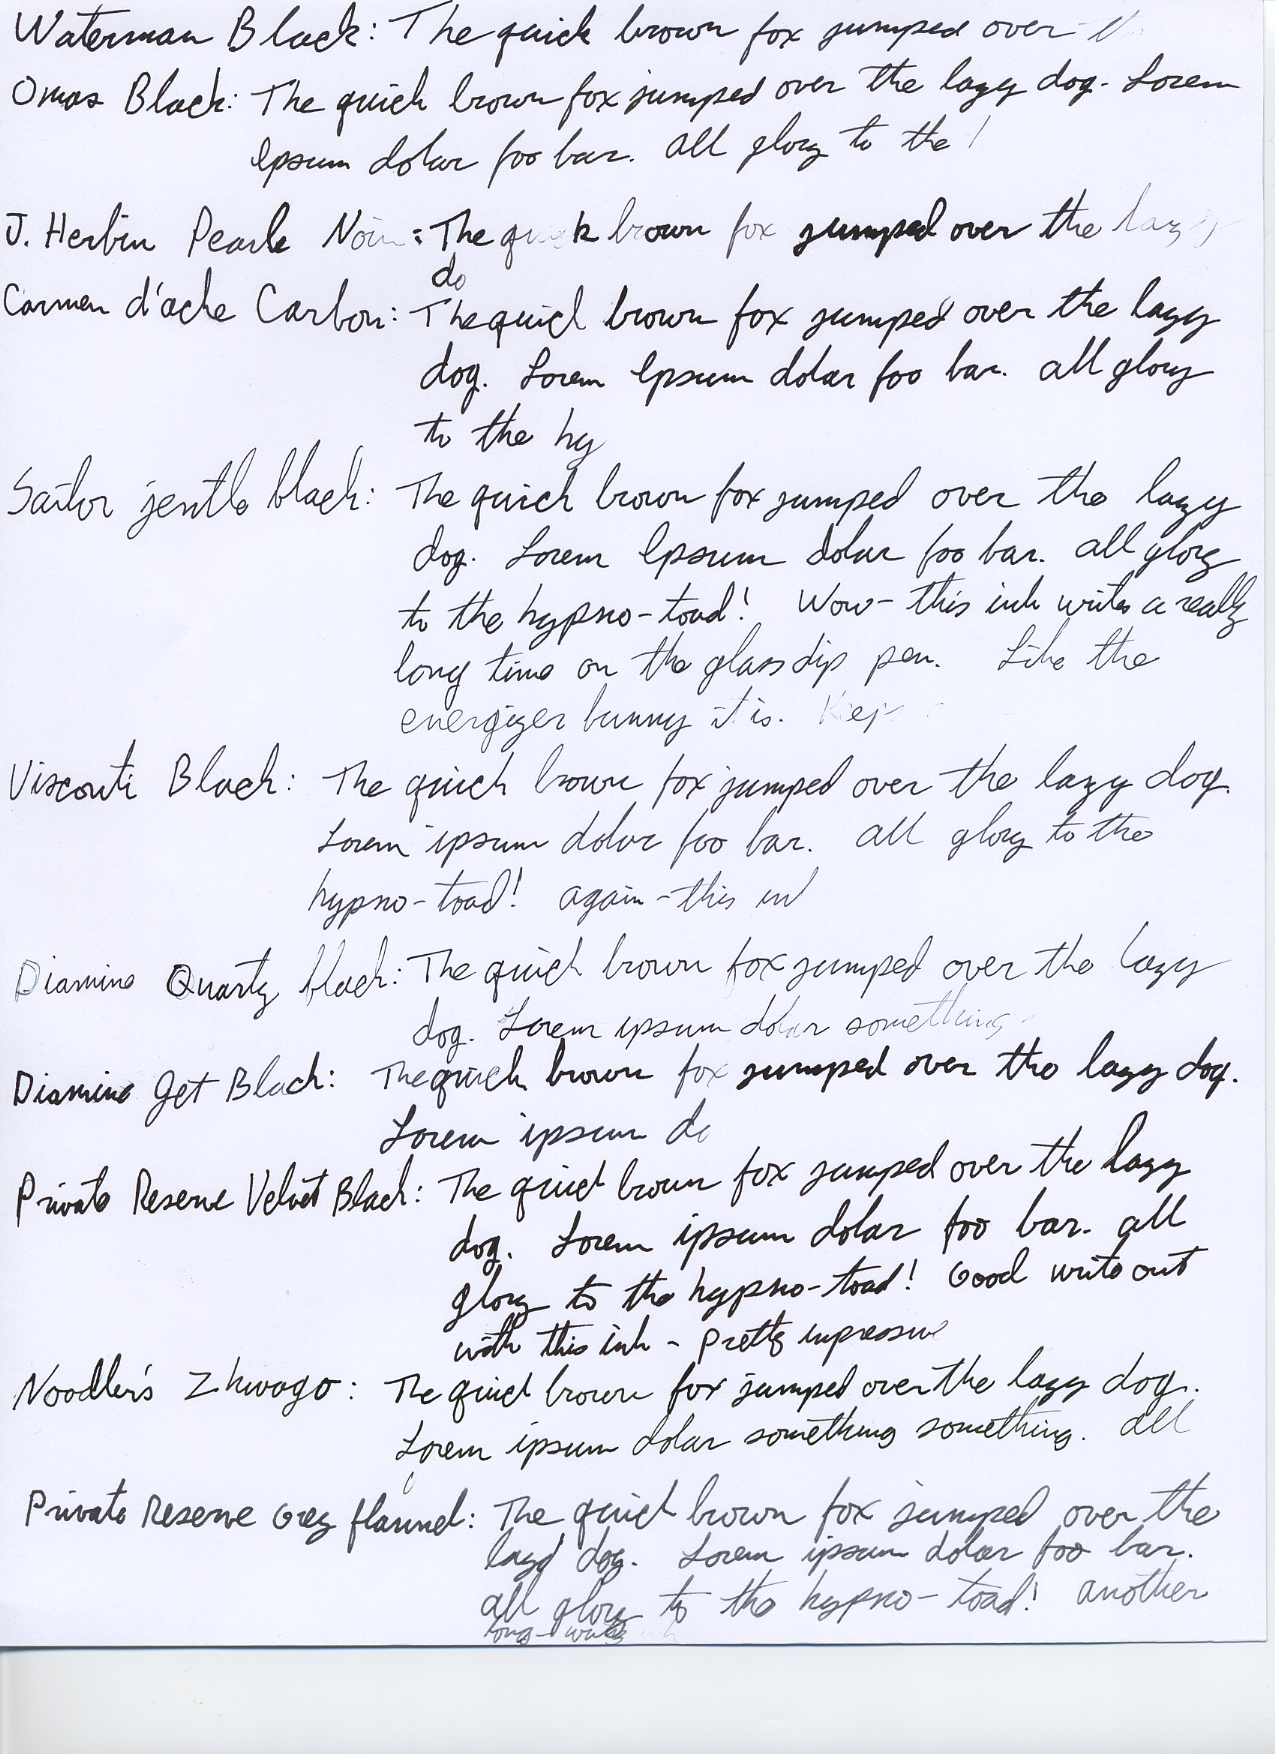 Waterman Black: The quick brown fox jumped over
Omas Black: The quick brown fox jumped over the lazy dog. Lorem
Ipsum dolar foo bar. All glory to the
J. Herbin Pearle Noir: The quick brown fox jumped over the lazy
do
Carmen d'ache Carbon: The quick brown fox jumped over the lazy
dog. Lorem Ipsum dolar foo bar. All glory
to the hy
Sailor jentle black: The quick brown fox jumped over the lazy
dog. Lorem Ipsum dolar foo bar. All glory
to the hypno-toad! Wow- this ink writes a really
long time on the glass dip pen. Like the
energizer bunny it is. Keep
Visconti Black: The quick brown fox jumped over the lazy dog.
Lorem ipsum dolar foo bar. All glory to the
hypno-toad! Again - this in
Diamine Quartz black: The quick brown fox jumped over the lazy
dog. Lorem ipsum dolar something
Diamine Jet Black: The quick brown fox jumped over the lazy dog.
Lorem ipsum do
Private Reserve Velvet Black: The quick brown fox jumped over the lazy
dog. Lorem ipsum dolar foo bar. All
glory to the hypno-toad! Good write out
with this ink - pretty impressive
Noodler's Zhivago: The quick brown fox jumped over the lazy dog.
Lorem ipsum dolar something something. All
Private Reserve Grey flannel: The quick brown fox jumped over the
lazy dog. Lorem ipsum dolar foo bar.
All glory to the hypno-toad! Another
long-write